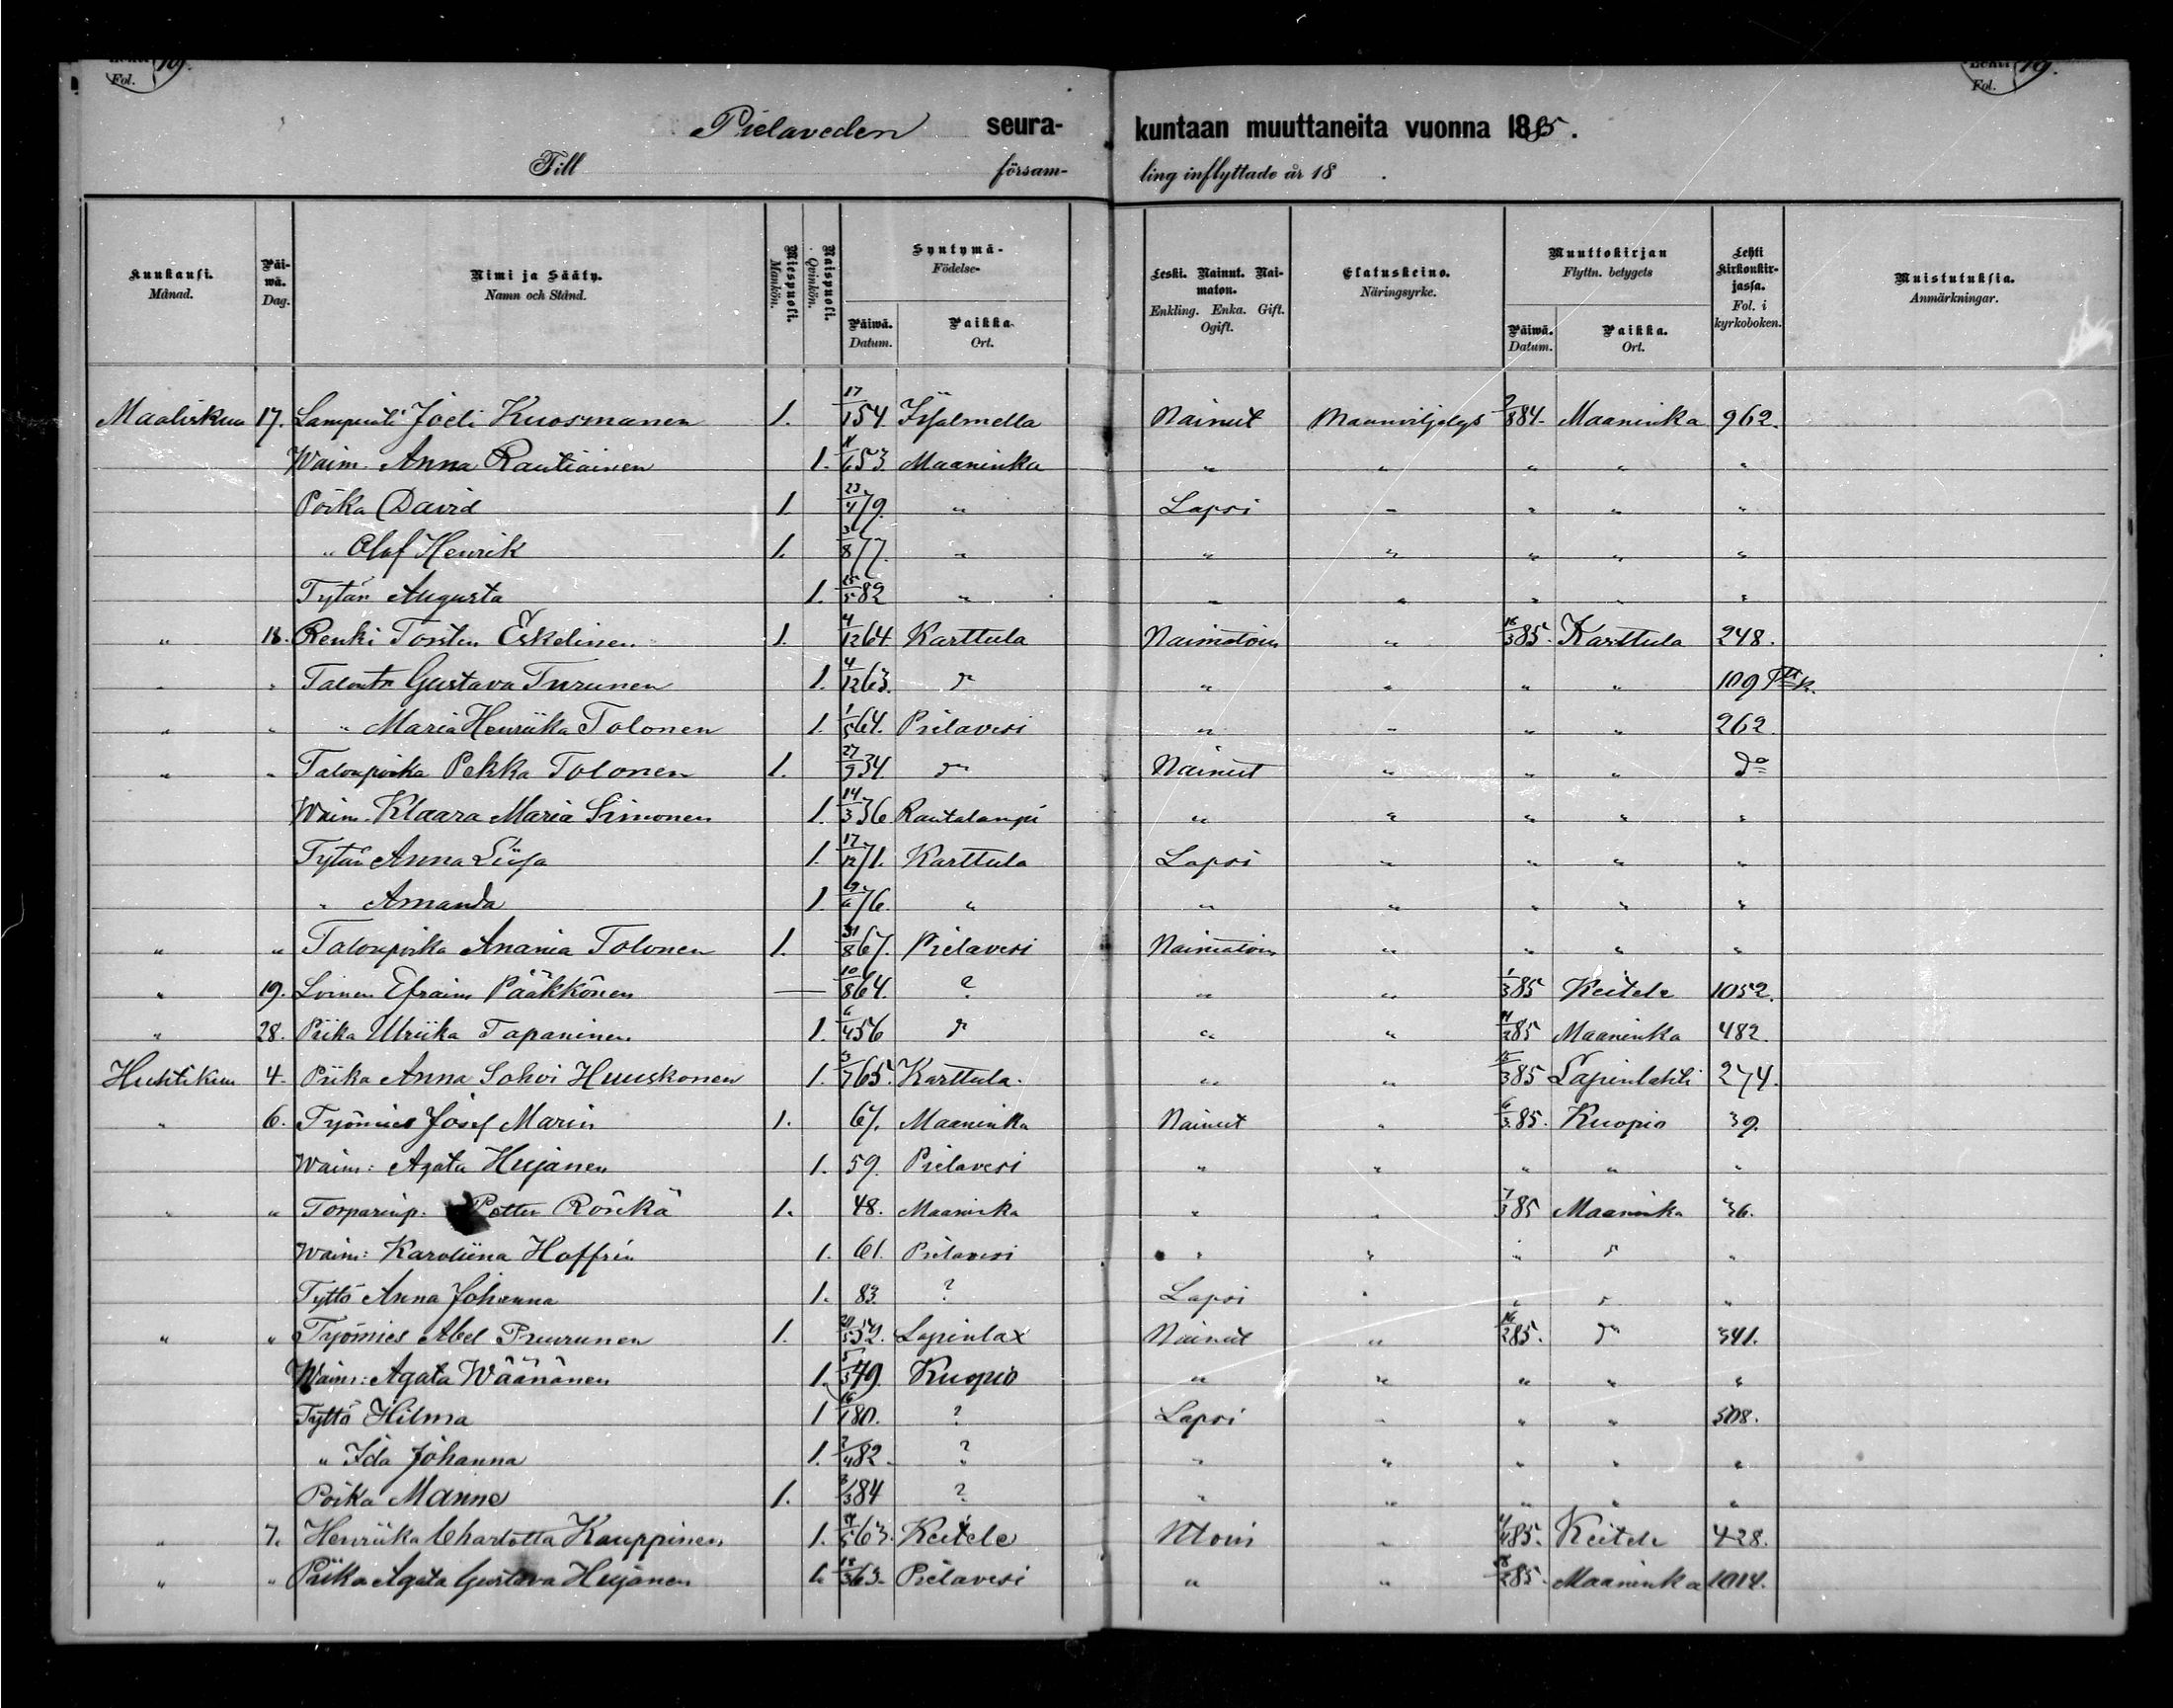 Fol. 19.
Lehti 19.
Fol.
Pielaveden seura- kuntaan muuttaneita vuonna 1885.
Till försam- ling inflyttade år 18 .
Kuukausi. Månad. Päiwä. Dag. Nimi ja Sääty. Namn och Stånd. Miespuoli. Mankön. Naispuoli. Qvinkön. Syntymä- Födelse- Päiwä. Datum. Paikka. Ort. Leski. Nainut. Naimaton. Enkling. Enka. Gift. Ogift. Elatuskeino. Näringsyrke. Muuttokirjan Flyttn. betygets Päiwä. Datum. Paikka. Ort. Lehti Kirkonkirjassa. Fol. i kyrkoboken. Muistutuksia. Anmärkningar.
Maaliskuu 17. Lampuoti Joeli Kuosmanen 1. 17/1 54. Iisalmella Nainut Maanviljelys 884. Maaninka 962.
Waim. Anna Rautiainen 1. 11/6 53. Maaninka " " " " "
Poika David 1. 23/4 79. " Lapsi " " " "
" Olaf Henrik 1. 8 77. " " " " " "
Tytär Augusta 1. 25/5 82 " " " " " "
" 18. Renki Torsten Eskelinen 1. 4/12 64. Karttula Naimatoin " 16/3 85. Karttula 248.
" " Talontr Gustava Turunen 1. 4/12 63. do " " " " 109
" " " Maria Henriika Tolonen 1. 1/5 64. Pielavesi " " " " 262.
" " Talonpoika Pekka Tolonen 1. 27/9 34. do Nainut " " " do
Waim. Klaara Maria Simonen 1. 14/3 36 Rautalampi " " " " "
Tytär Anna Liisa 1. 17/12 71. Karttula Lapsi " " " "
" Amanda 1. 76. " " " " " "
" " Talonpoika Anania Tolonen 1. 31/8 67. Pielavesi Naimatoin " " " "
" 19. Loinen Efraim Pääkkönen — 10/8 64. ? " " 1/3 85 Keitele 1052.
" 28. Piika Ulriika Tapaninen 1. 6/4 56 do " " 2 85 Maaninka 482.
Huhtikuu 4. Piika Anna Sohvi Huuskonen 1. 3/7 65. Karttula. " " 15/3 85 Lapinlahti 274.
" 6. Työmies Josef Marin 1. 67. Maaninka Nainut " 6/3 85. Kuopio 39.
Waim: Agata Hujanen 1. 59. Pielavesi " " " " "
" " Torparinp. Petter Röukä 1. 48. Maaninka " " 7/3 85 Maaninka 36.
Waim: Karoliina Hoffrén 1. 61. Pielavesi " " " " "
Tyttö Anna Johanna 1. 83. ? Lapsi " " " "
" " Työmies Abel Pruurunen 1. 52. Lapinlax Nainut " 16/2 85. do 341.
Waim: Agata Wäänänen 1. 5/3 49. Kuopio " " " " "
Tyttö Hilma 1 16/1 80. ? Lapsi " " " 508.
" Ida Johanna 1. 2/4 82. ? " " " " "
Poika Manne 1. 3/3 84 ? " " " " "
" 7. Henriika Charlotta Kauppinen 1. 5 63. Keitele Ntoin " 4/4 85. Keitele 428.
" " Piika Agata Gustava Hujanen 1. 18/3 63. Pielavesi " " 28/2 85. Maaninka 1014.